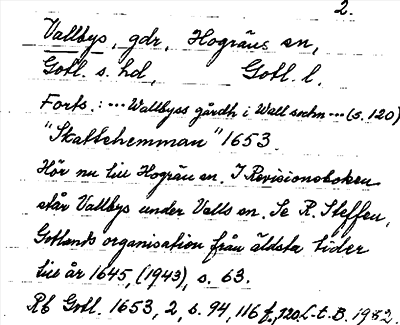 2.
Vallbys, gdr, Hogräns sn,
Gotl. s. hd, Gotl. l.
Forts.: ... Wallbyss gårdh i Wall sochn ... (s. 120)
"Skattehemman" 1653.
Hör nu till Hogrän sn. I Revisionsboken
står Vallbys under Valls sn. Se R. Steffen,
Gotlands organisation från äldsta tider
till år 1645, (1943), s. 63.
Rb Gotl. 1653, 2, s. 94, 116 f., 120. L-t. B. 1982.